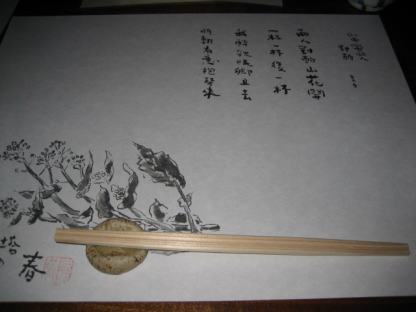 山中與幽人
對酌
兩人對酌山花開
一杯一杯復一杯
我醉欲眠卿且去
明朝有意抱琴來
春
塔